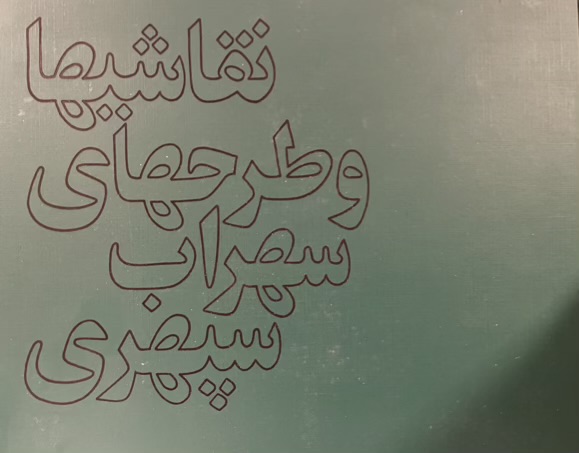 نقاشیها
وطرحهای
سهراب
سپهری